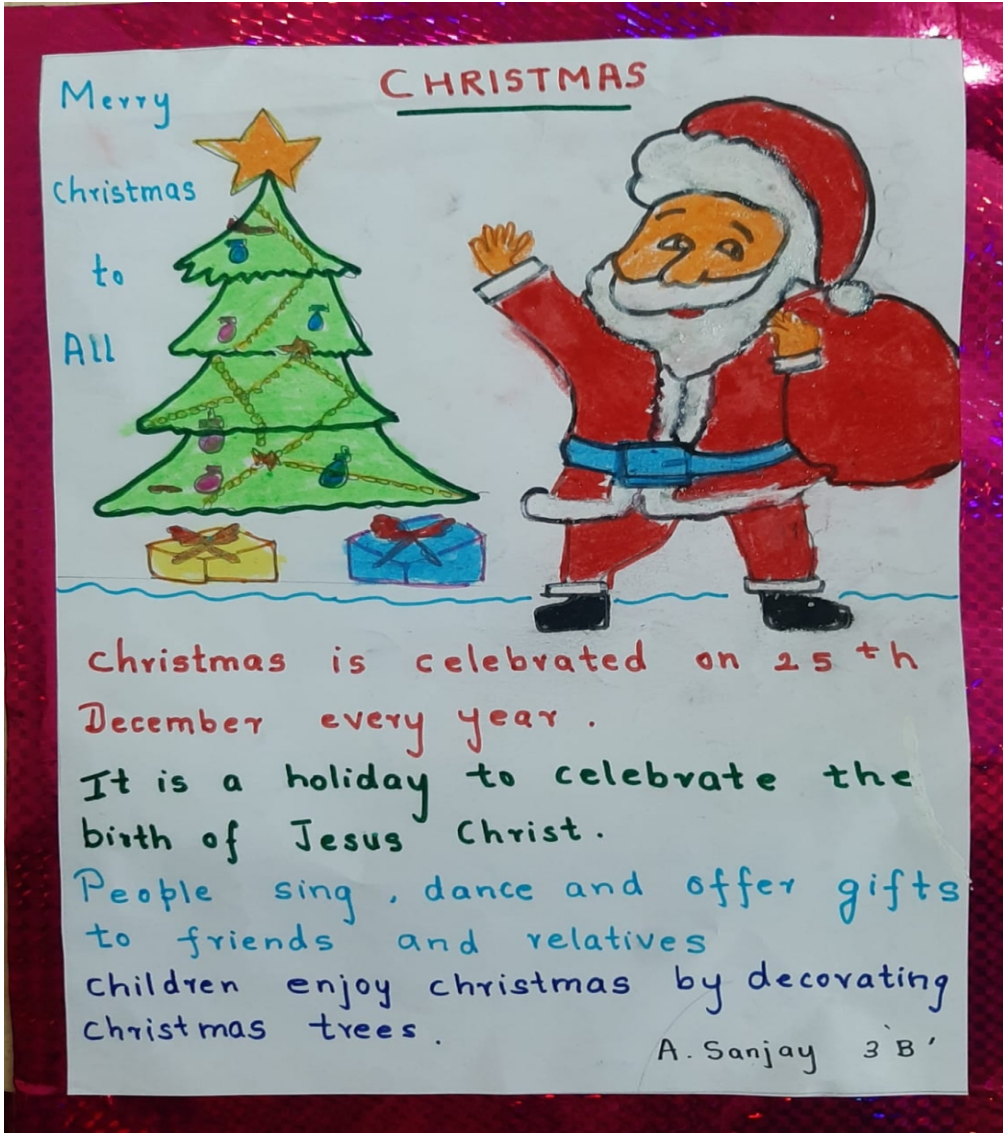 CHRISTMAS
Merry
Christmas
to
All
Christmas is celebrated on 25th
December every year.
It is a holiday to celebrate the
birth of Jesus Christ.
People sing, dance and offer gifts
to friends and relatives
children enjoy christmas by decorating
christmas trees.
A. Sanjay 3 'B'